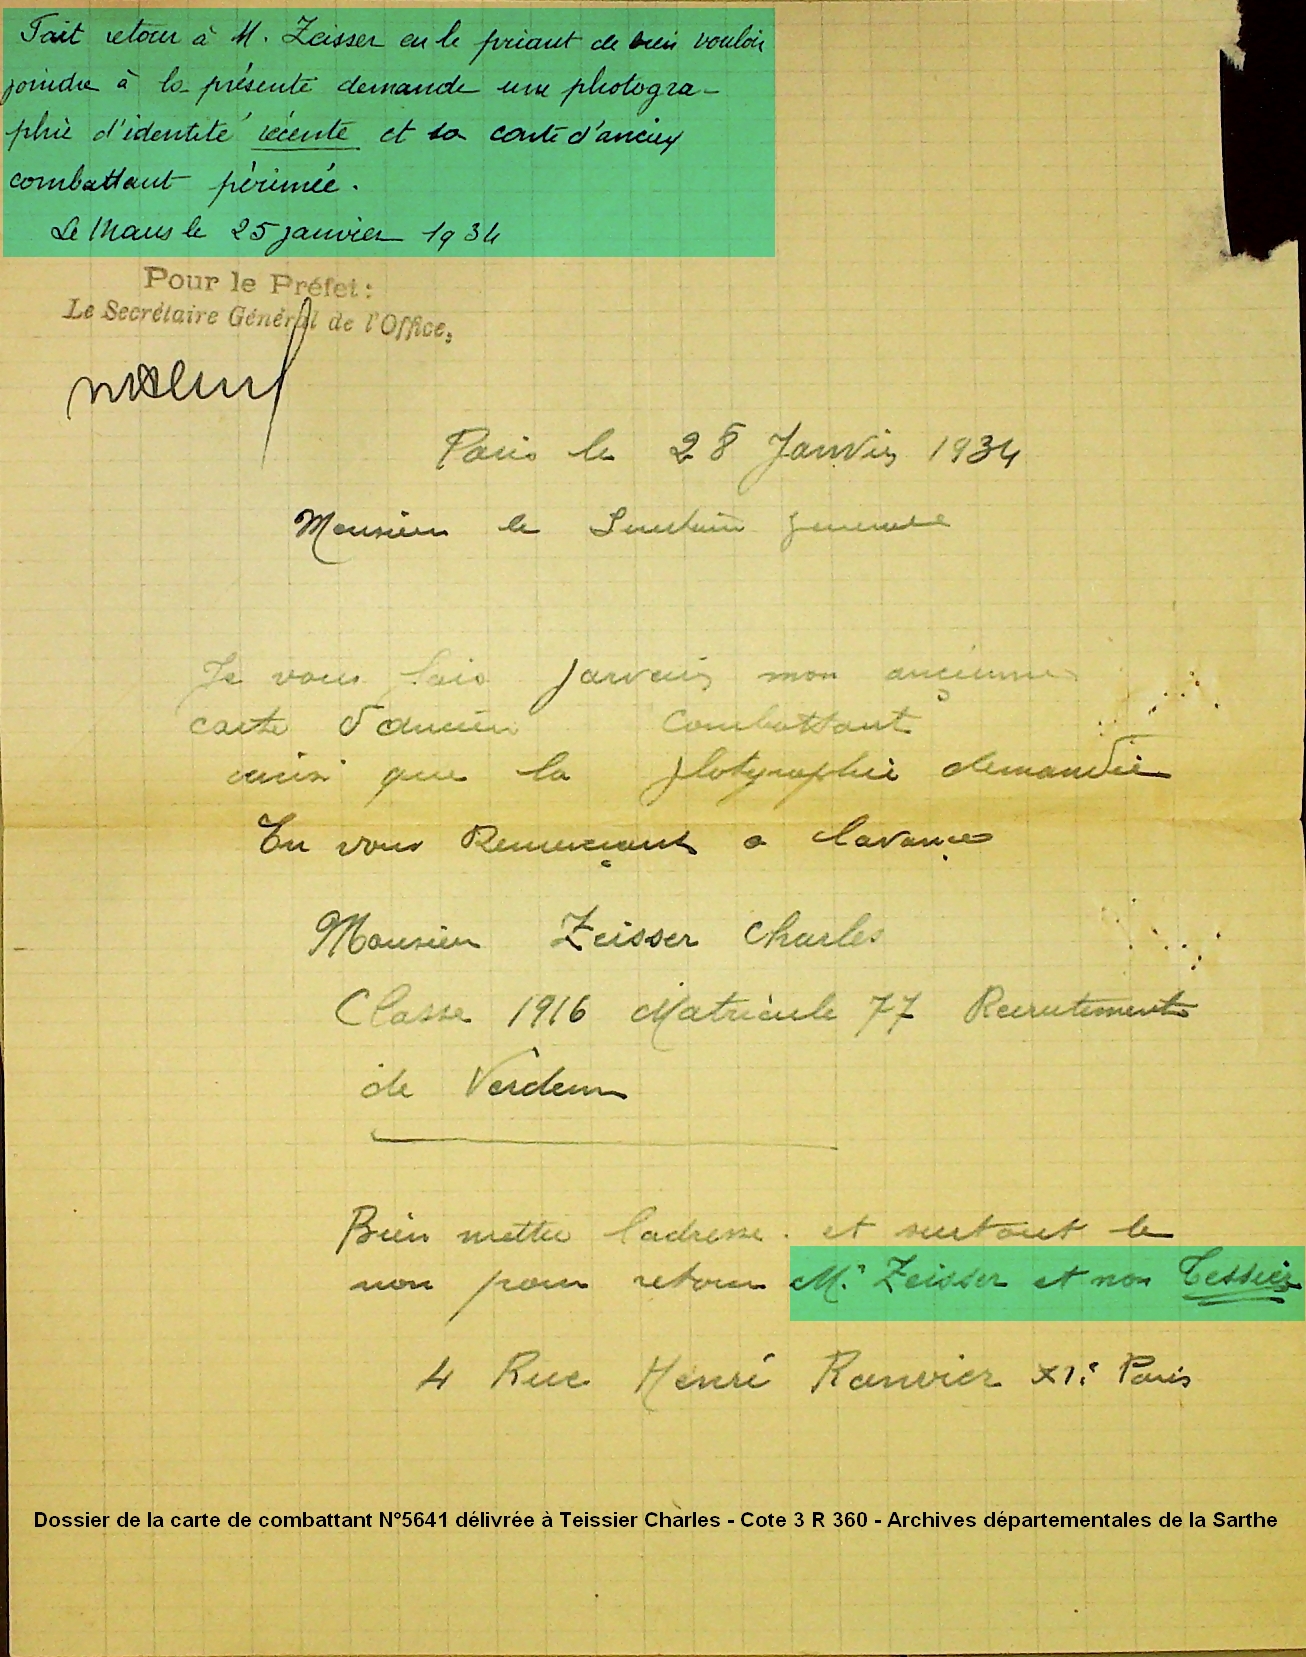 Fait retour à M. Zeisser en le priant de bien vouloir
joindre à la présente demande une photogra-
phie d'identité récente et sa carte d'ancien
combattant périmée.
Le Mans le 25 janvier 1934
Pour le Préfet :
Le Secrétaire Général de l'Office,
Paris le 28 Janvier 1934
Monsieur le Secretaire generale
Je vous fais parvenir mon ançienne
carte d'ancien Combattant
ainsi que la photographie demandée
En vous Remerçiant a lavançe
Monsieur Zeisser Charles
Classe 1916 Matricule 77 Recrutement
de Verdun
Bien mettre ladresse. et surtout le
non pour retour M. Zeisser et non Tessier
4 Rue Henri Ranvier XIe Paris
Dossier de la carte de combattant N°5641 délivrée à Teissier Charles - Cote 3 R 360 - Archives départementales de la Sarthe